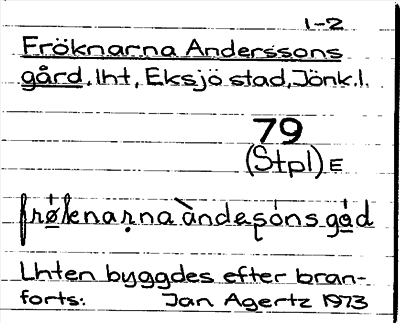 1-2
Fröknarna Anderssons
gård, lht, Eksjö stad, Jönk.l.
79
(Stpl) E
frø̱kenaṛna àndeʂóns gå̱d
Lhten byggdes efter bran-
forts: Jan Agertz 1973